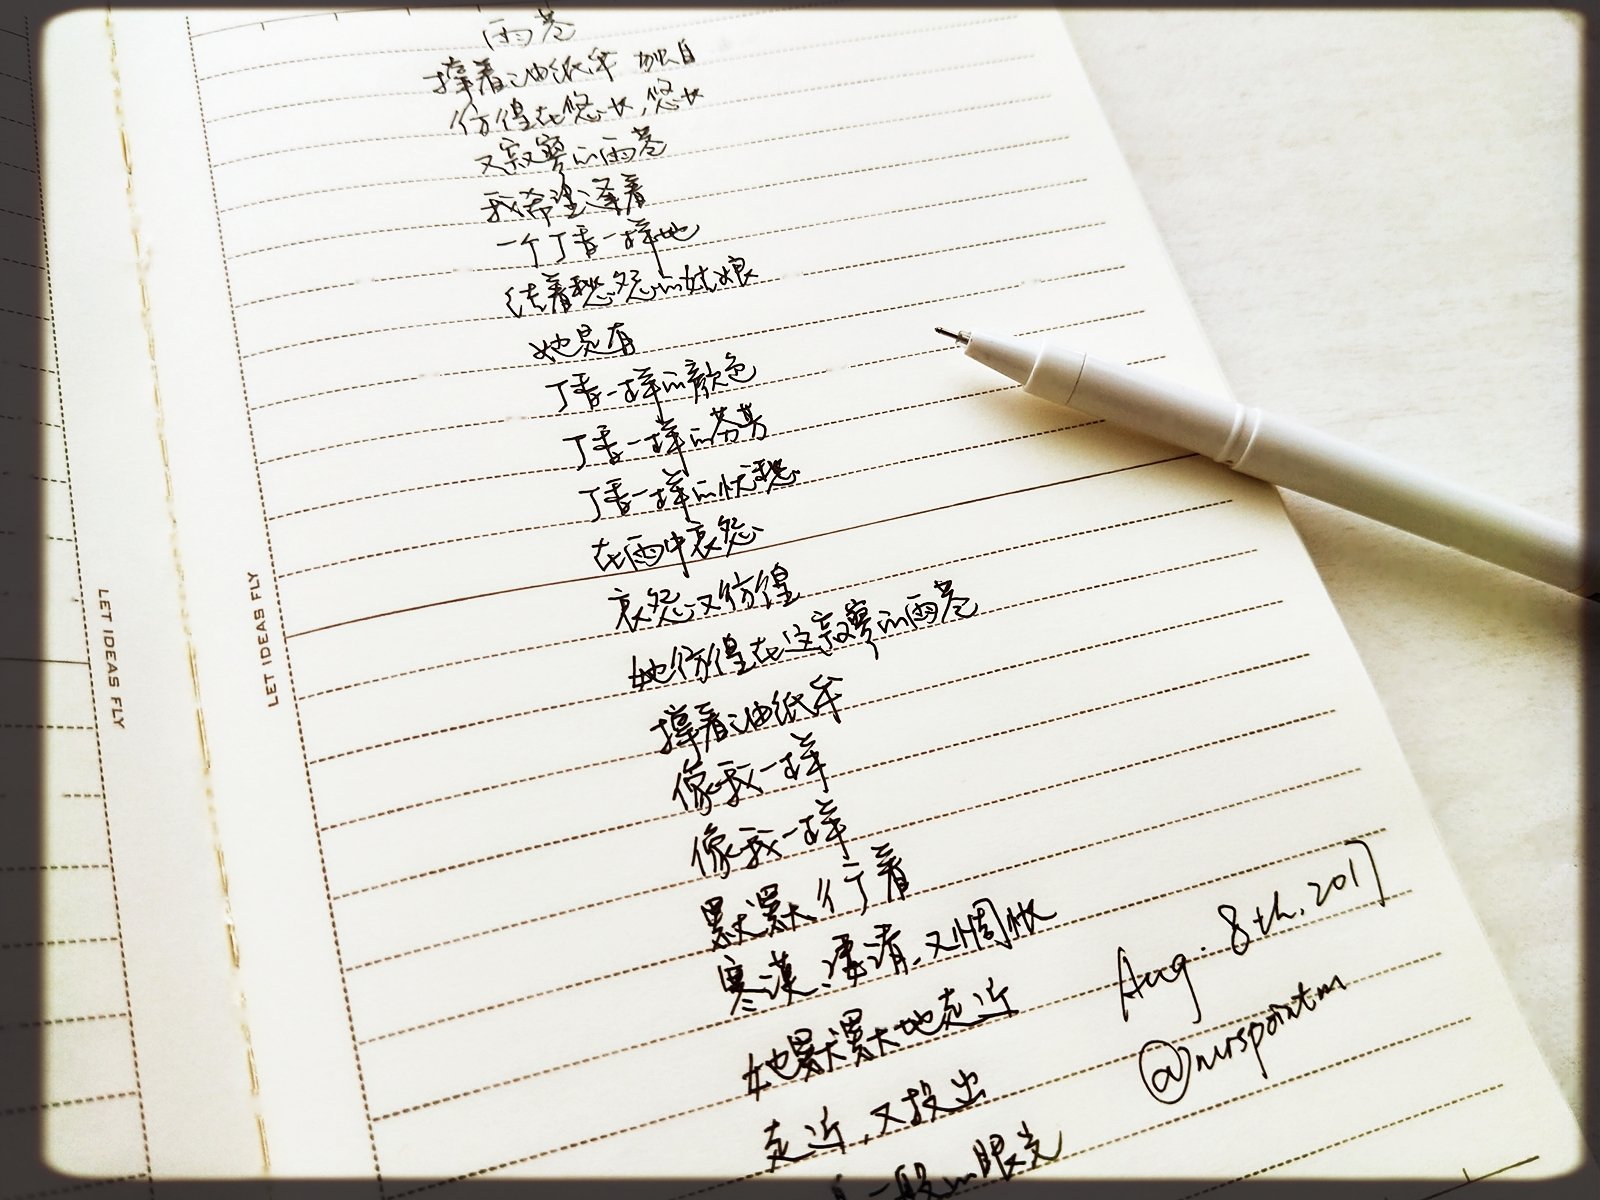 雨巷
撑着油纸伞 独自
彷徨在悠长,悠长
又寂寥的雨巷
我希望逢着
一个丁香一样地
结着愁怨的姑娘
她是有
丁香一样的颜色
丁香一样的芬芳
丁香一样的忧愁
在雨中哀怨
哀怨又彷徨
她彷徨在这寂寥的雨巷
撑着油纸伞
像我一样
像我一样
默默行着
寒漠、凄清,又惆怅
她默默地走近
走近,又投出
一般的眼光
Aug. 8th, 2017
@mrspointm
LET IDEAS FLY
LET IDEAS FLY